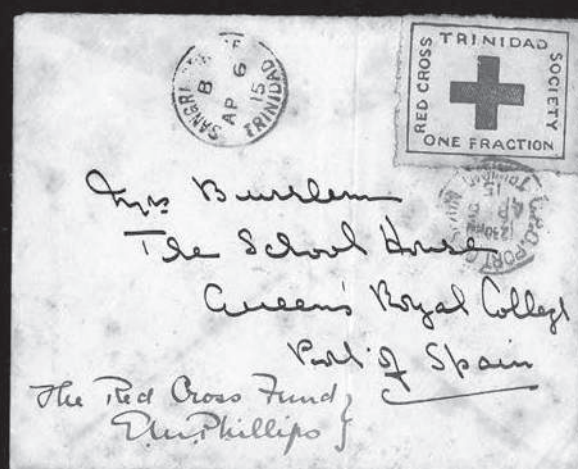 SANGRE
B
AP 6
15
TRINIDAD
TRINIDAD
RED CROSS
SOCIETY
ONE FRACTION
G.P.O. PORT
AP
15
TRINIDAD
Mrs Burslem
The School House
Queen's Royal College
Port of Spain
The Red Cross Fund
Phillips